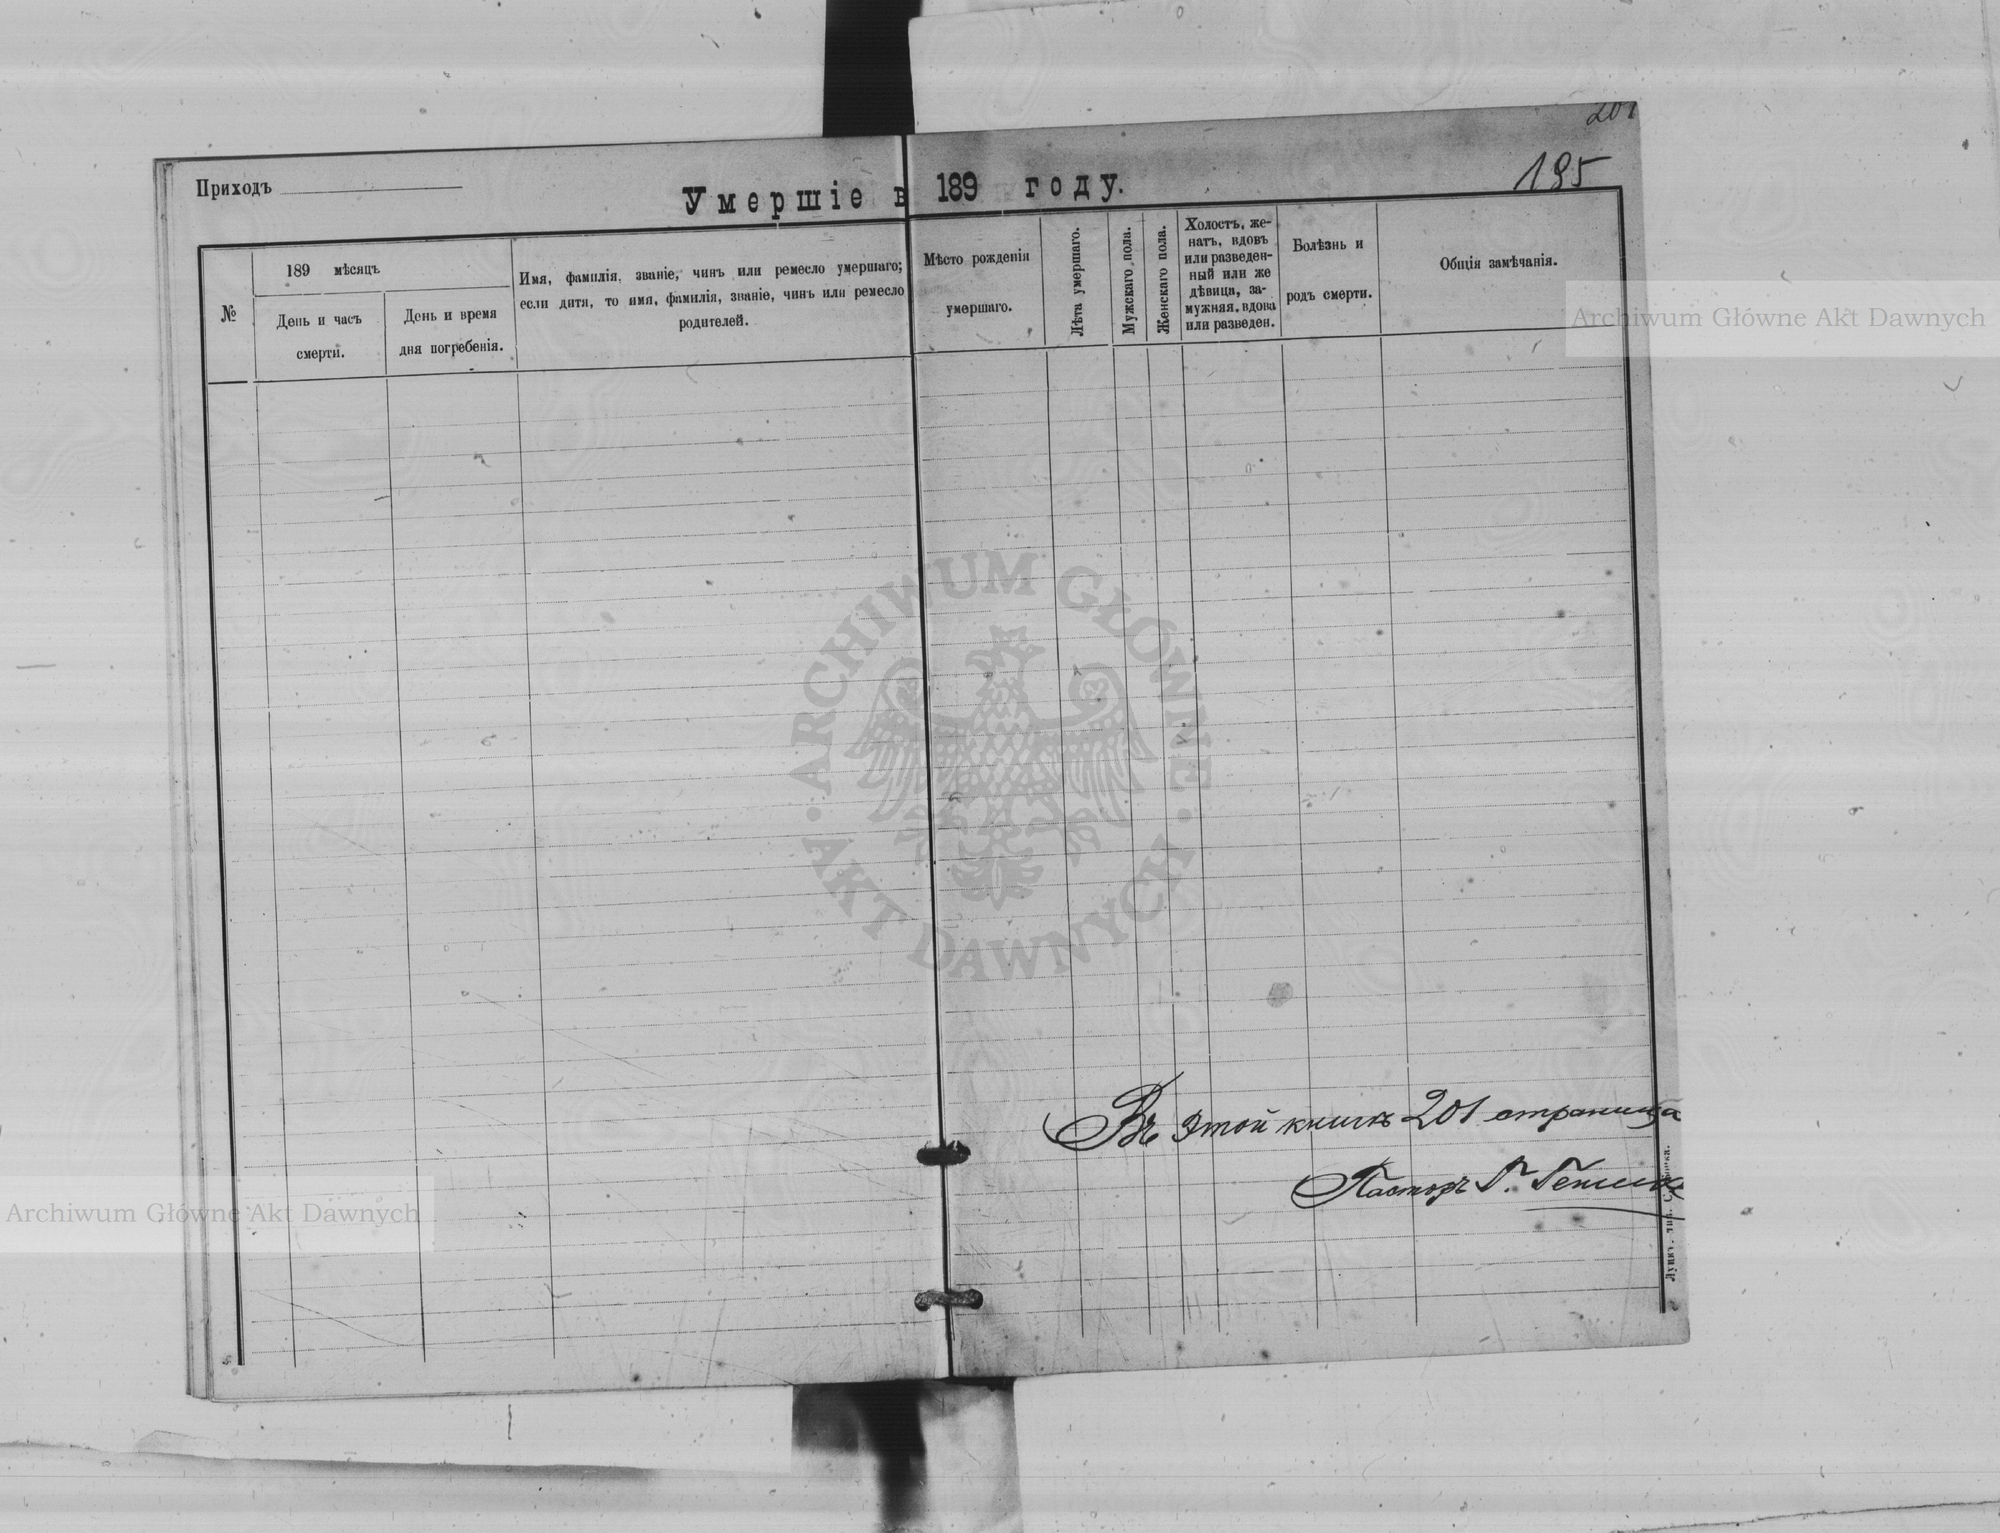 201
195
Приходъ
Умершіе в 189 году.
№
189 мѣсяцъ
День и часъ
смерти.
День и время
дня погребенія.
Имя, фамилія, званіе, чинъ или ремесло умершаго;
если дитя, то имя, фамилія, званіе, чинъ или ремесло
родителей.
Мѣсто рожденія
умершаго.
Лѣта умершаго.
Мужскаго пола.
Женскаго пола.
Холостъ, же-
натъ, вдовъ
или разведен-
ный или же
дѣвица, за-
мужняя, вдова
или разведен.
Болѣзнь и
родъ смерти.
Общія замѣчанія.
Archiwum Główne Akt Dawnych
ARCHIWUM GŁÓWNE · AKT DAWNYCH ·
Въ этой книгѣ 201 страница
Пасторъ
Archiwum Główne Akt Dawnych
Луцкъ. тип.